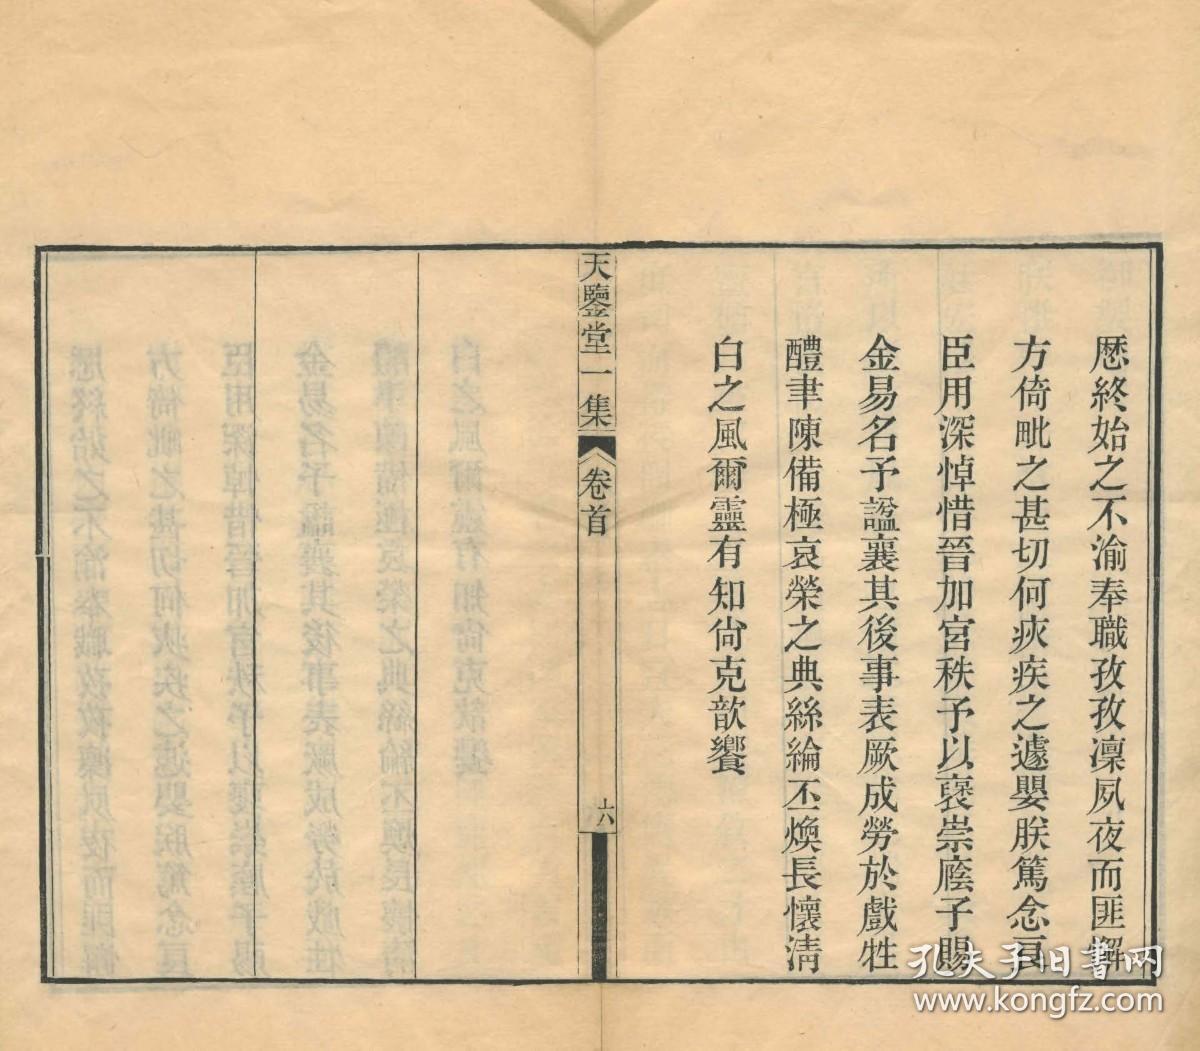 歷終始之不渝奉職孜孜凜夙夜而匪懈
方倚毗之甚切何疢疾之遽嬰朕篤念良
臣用深悼惜晉加宮秩予以褒崇廕子賜
金易名予諡襄其後事表厥成勞於戲牲
醴聿陳備極哀榮之典絲綸丕煥長懷淸
白之風爾靈有知尙克歆饗
天鑒堂一集
卷首
六
孔夫子旧书网
www.kongfz.com